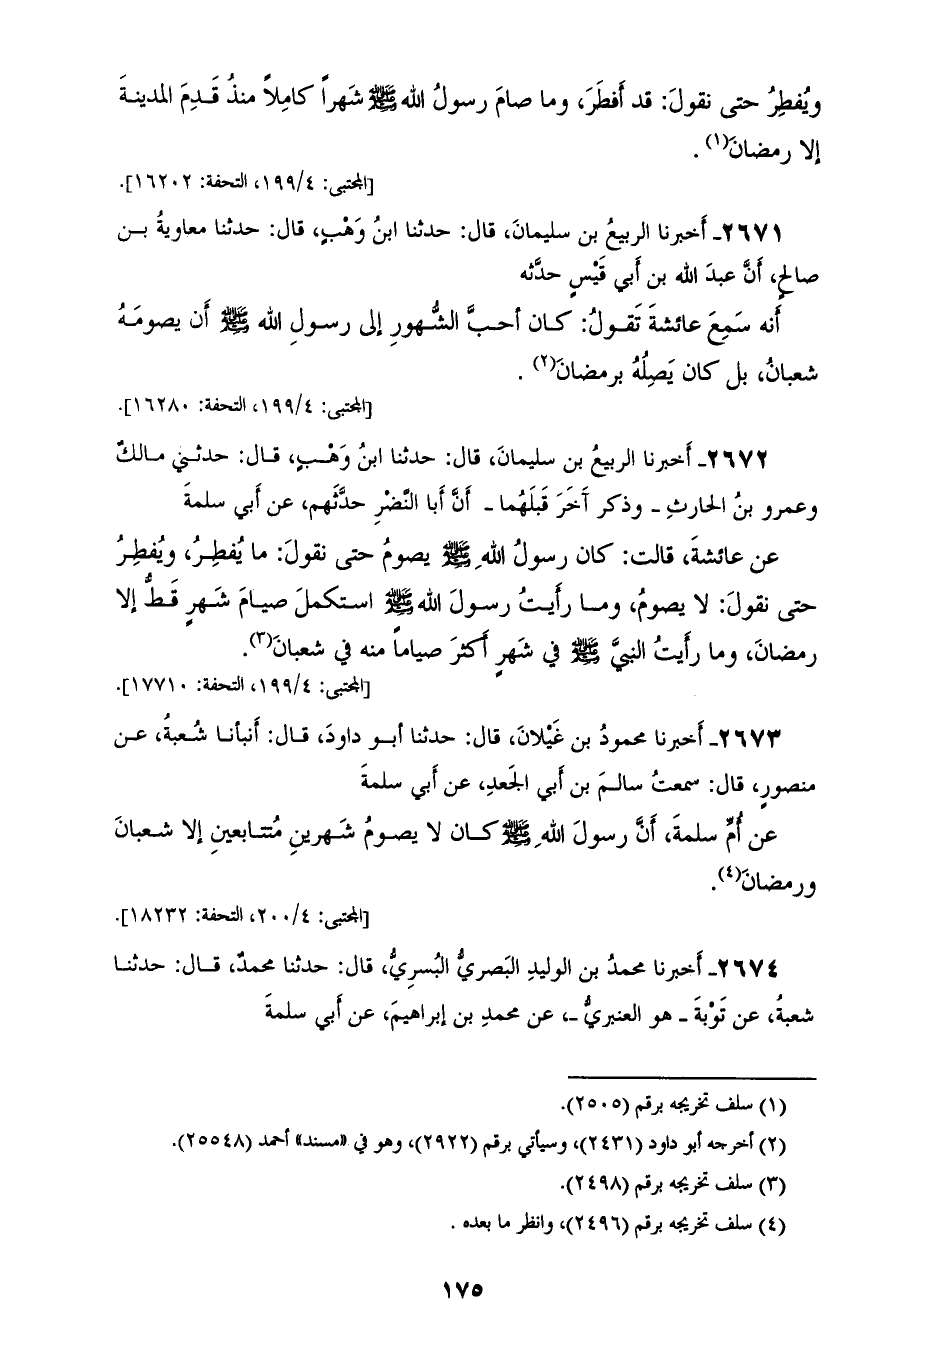 ويُفطِرُ حتى نقولَ: قد أَفطَرَ، وما صامَ رسولُ الله ﷺ شَهراً كامِلاً منذُ قَدِمَ المدينةَ
إلا رمضانَ(١) .
[المجتبى: ١٩٩/٤، التحفة: ١٦٢٠٢].
٢٦٧١ـ أَخبرنا الربيعُ بن سليمانَ، قال: حدثنا ابنُ وَهْبٍ، قال: حدثنا معاويةُ بن
صالحٍ، أَنَّ عبدَ الله بن أَبي قَيْسٍ حدَّثه
أَنه سَمِعَ عائشةَ تَقولُ: كان أحبَّ الشُّهورِ إلى رسولِ الله ﷺ أَن يصومَهُ
شعبانُ، بل كان يَصِلُهُ برمضانَ(٢) .
[المجتبى: ١٩٩/٤، التحفة: ١٦٢٨٠].
٢٦٧٢ـ أَخبرنا الربيعُ بن سليمانَ، قال: حدثنا ابنُ وَهْبٍ، قال: حدثني مالكٌ
وعمرو بنُ الحارثِ ـ وذكر آخَرَ قَبلَهُما ـ أَنَّ أَبا النَّضْرِ حدَّثَهم، عن أَبي سلمةَ
عن عائشةَ، قالت: كان رسولُ اللهِ ﷺ يصومُ حتى نقولَ: ما يُفطِرُ، ويُفطِرُ
حتى نقولَ: لا يصومُ، وما رأَيتُ رسولَ الله ﷺ استكملَ صيامَ شَهرٍ قَطُّ إلا
رمضانَ، وما رأَيتُ النبيَّ ﷺ في شَهرٍ أَكثرَ صياماً منه في شعبانَ(٣).
[المجتبى: ١٩٩/٤، التحفة: ١٧٧١٠].
٢٦٧٣ـ أَخبرنا محمودُ بن غَيْلانَ، قال: حدثنا أبو داودَ، قال: أَنبأنا شُعبةُ، عن
منصورٍ، قال: سمعتُ سالمَ بن أَبي الجَعدِ، عن أَبي سلمةَ
عن أُمِّ سلمةَ، أَنَّ رسولَ اللهِ ﷺ كان لا يصومُ شَهرينِ مُتتابعينِ إلا شعبانَ
ورمضانَ(٤).
[المجتبى: ٢٠٠/٤، التحفة: ١٨٢٣٢].
٢٦٧٤ـ أَخبرنا محمدُ بن الوليدِ البَصريُّ البُسريُّ، قال: حدثنا محمدٌ، قال: حدثنا
شعبةُ، عن تَوْبةَ ـ هو العنبريُّ ـ، عن محمدِ بن إبراهيمَ، عن أَبي سلمةَ
(١) سلف تخريجه برقم (٢٥٠٥).
(٢) أخرجه أبو داود (٢٤٣١)، وسيأتي برقم (٢٩٢٢)، وهو في «مسند» أحمد (٢٥٥٤٨).
(٣) سلف تخريجه برقم (٢٤٩٨).
(٤) سلف تخريجه برقم (٢٤٩٦)، وانظر ما بعده .
١٧٥